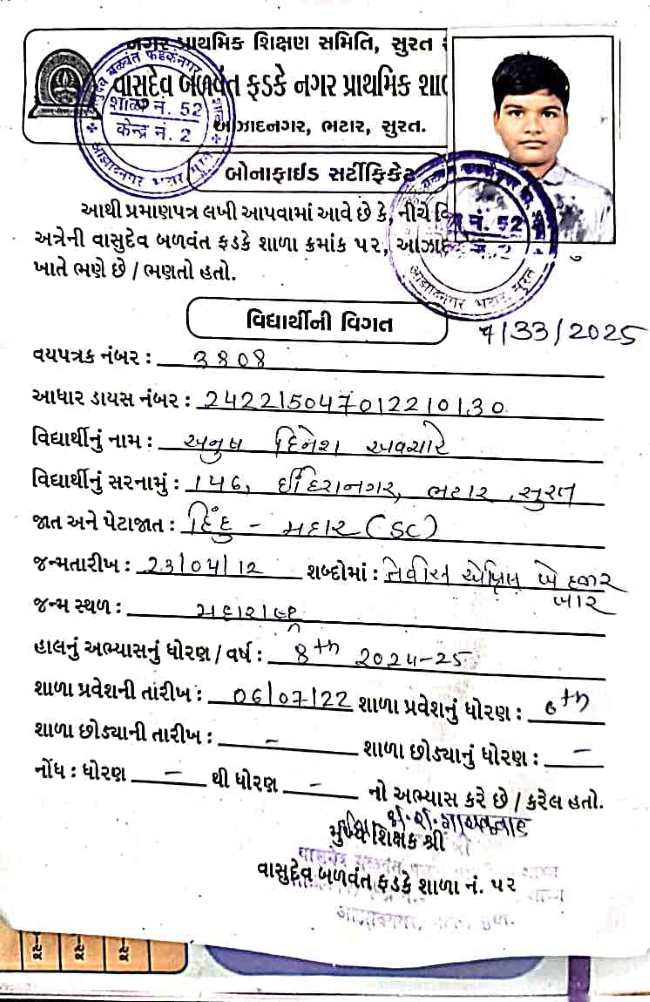 નગર પ્રાથમિક શિક્ષણ સમિતિ, સુરત
વાસદેવ બળવંત ફડકે નગર પ્રાથમિક શાળ
આઝાદનગર, ભટાર, સુરત.
શાળા નં. 52
કેન્દ્ર નં. 2
આઝાદનગર ભટાર
બોનાફાઈડ સર્ટીફિકેટ
નં. 52
આઝાદનગર ભટાર, સુરત
આથી પ્રમાણપત્ર લખી આપવામાં આવે છે કે, નીચે
અત્રેની વાસુદેવ બળવંત ફડકે શાળા ક્રમાંક ૫૨, આઝાદ
ખાતે ભણે છે / ભણતો હતો.
વિદ્યાર્થીની વિગત
/33/2025
વયપત્રક નંબર : 3808
આધાર ડાયસ નંબર : 242215047012210130
વિદ્યાર્થીનું નામ : અનુષ દિનેશ અવચારે
વિદ્યાર્થીનું સરનામું : 146, ઈંદિરાનગર, ભટાર, સુરત
જાત અને પેટાજાત : હિંદુ - મહાર (SC)
જન્મતારીખ : 23/04/12 શબ્દોમાં : ત્રેવીસ એપ્રિલ બે હજાર
બાર
જન્મ સ્થળ : મહારાષ્ટ્ર
હાલનું અભ્યાસનું ધોરણ / વર્ષ : 8th 2024-25
શાળા પ્રવેશની તારીખ : 06/07/22 શાળા પ્રવેશનું ધોરણ : 6th
શાળા છોડ્યાની તારીખ : - શાળા છોડ્યાનું ધોરણ : -
નોંધ : ધોરણ - થી ધોરણ - નો અભ્યાસ કરે છે / કરેલ હતો.
મુખ્ય શિક્ષક શ્રી
વાસુદેવ બળવંત ફડકે શાળા નં. ૫૨